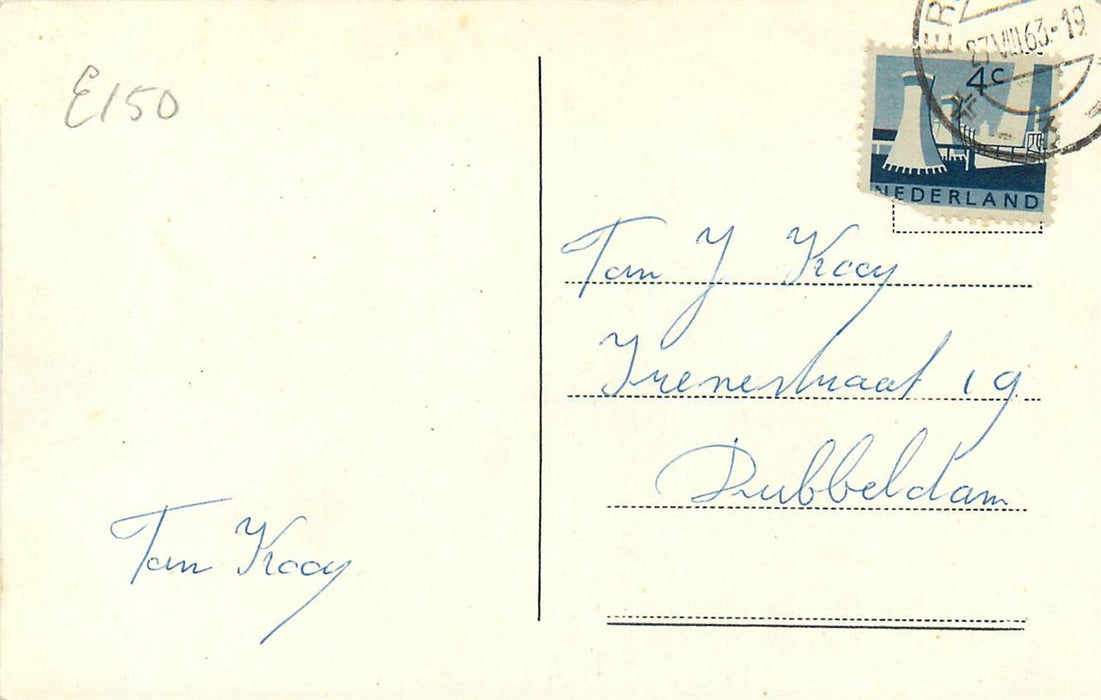 E150
ER
27 VIII 63-19
4c
NEDERLAND
Fam J Kooy
Irenestraat 19
Dubbeldam
Fam Kooy